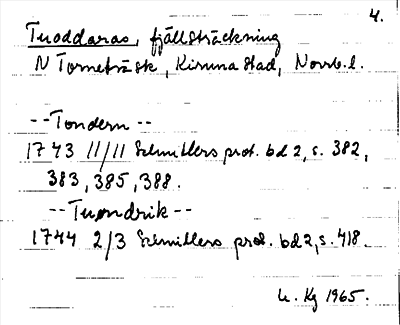 4.
Tuoddaras, fjällsträckning
N Torneträsk, Kiruna stad, Norrb.l.
--Tondern--
1743 11/11 Schnitlers prot. bd 2, s. 382,
383, 385, 388.
--Tuondrik--
1744 2/3 Schnitlers prot. bd 2, s. 418.
Kg 1965.